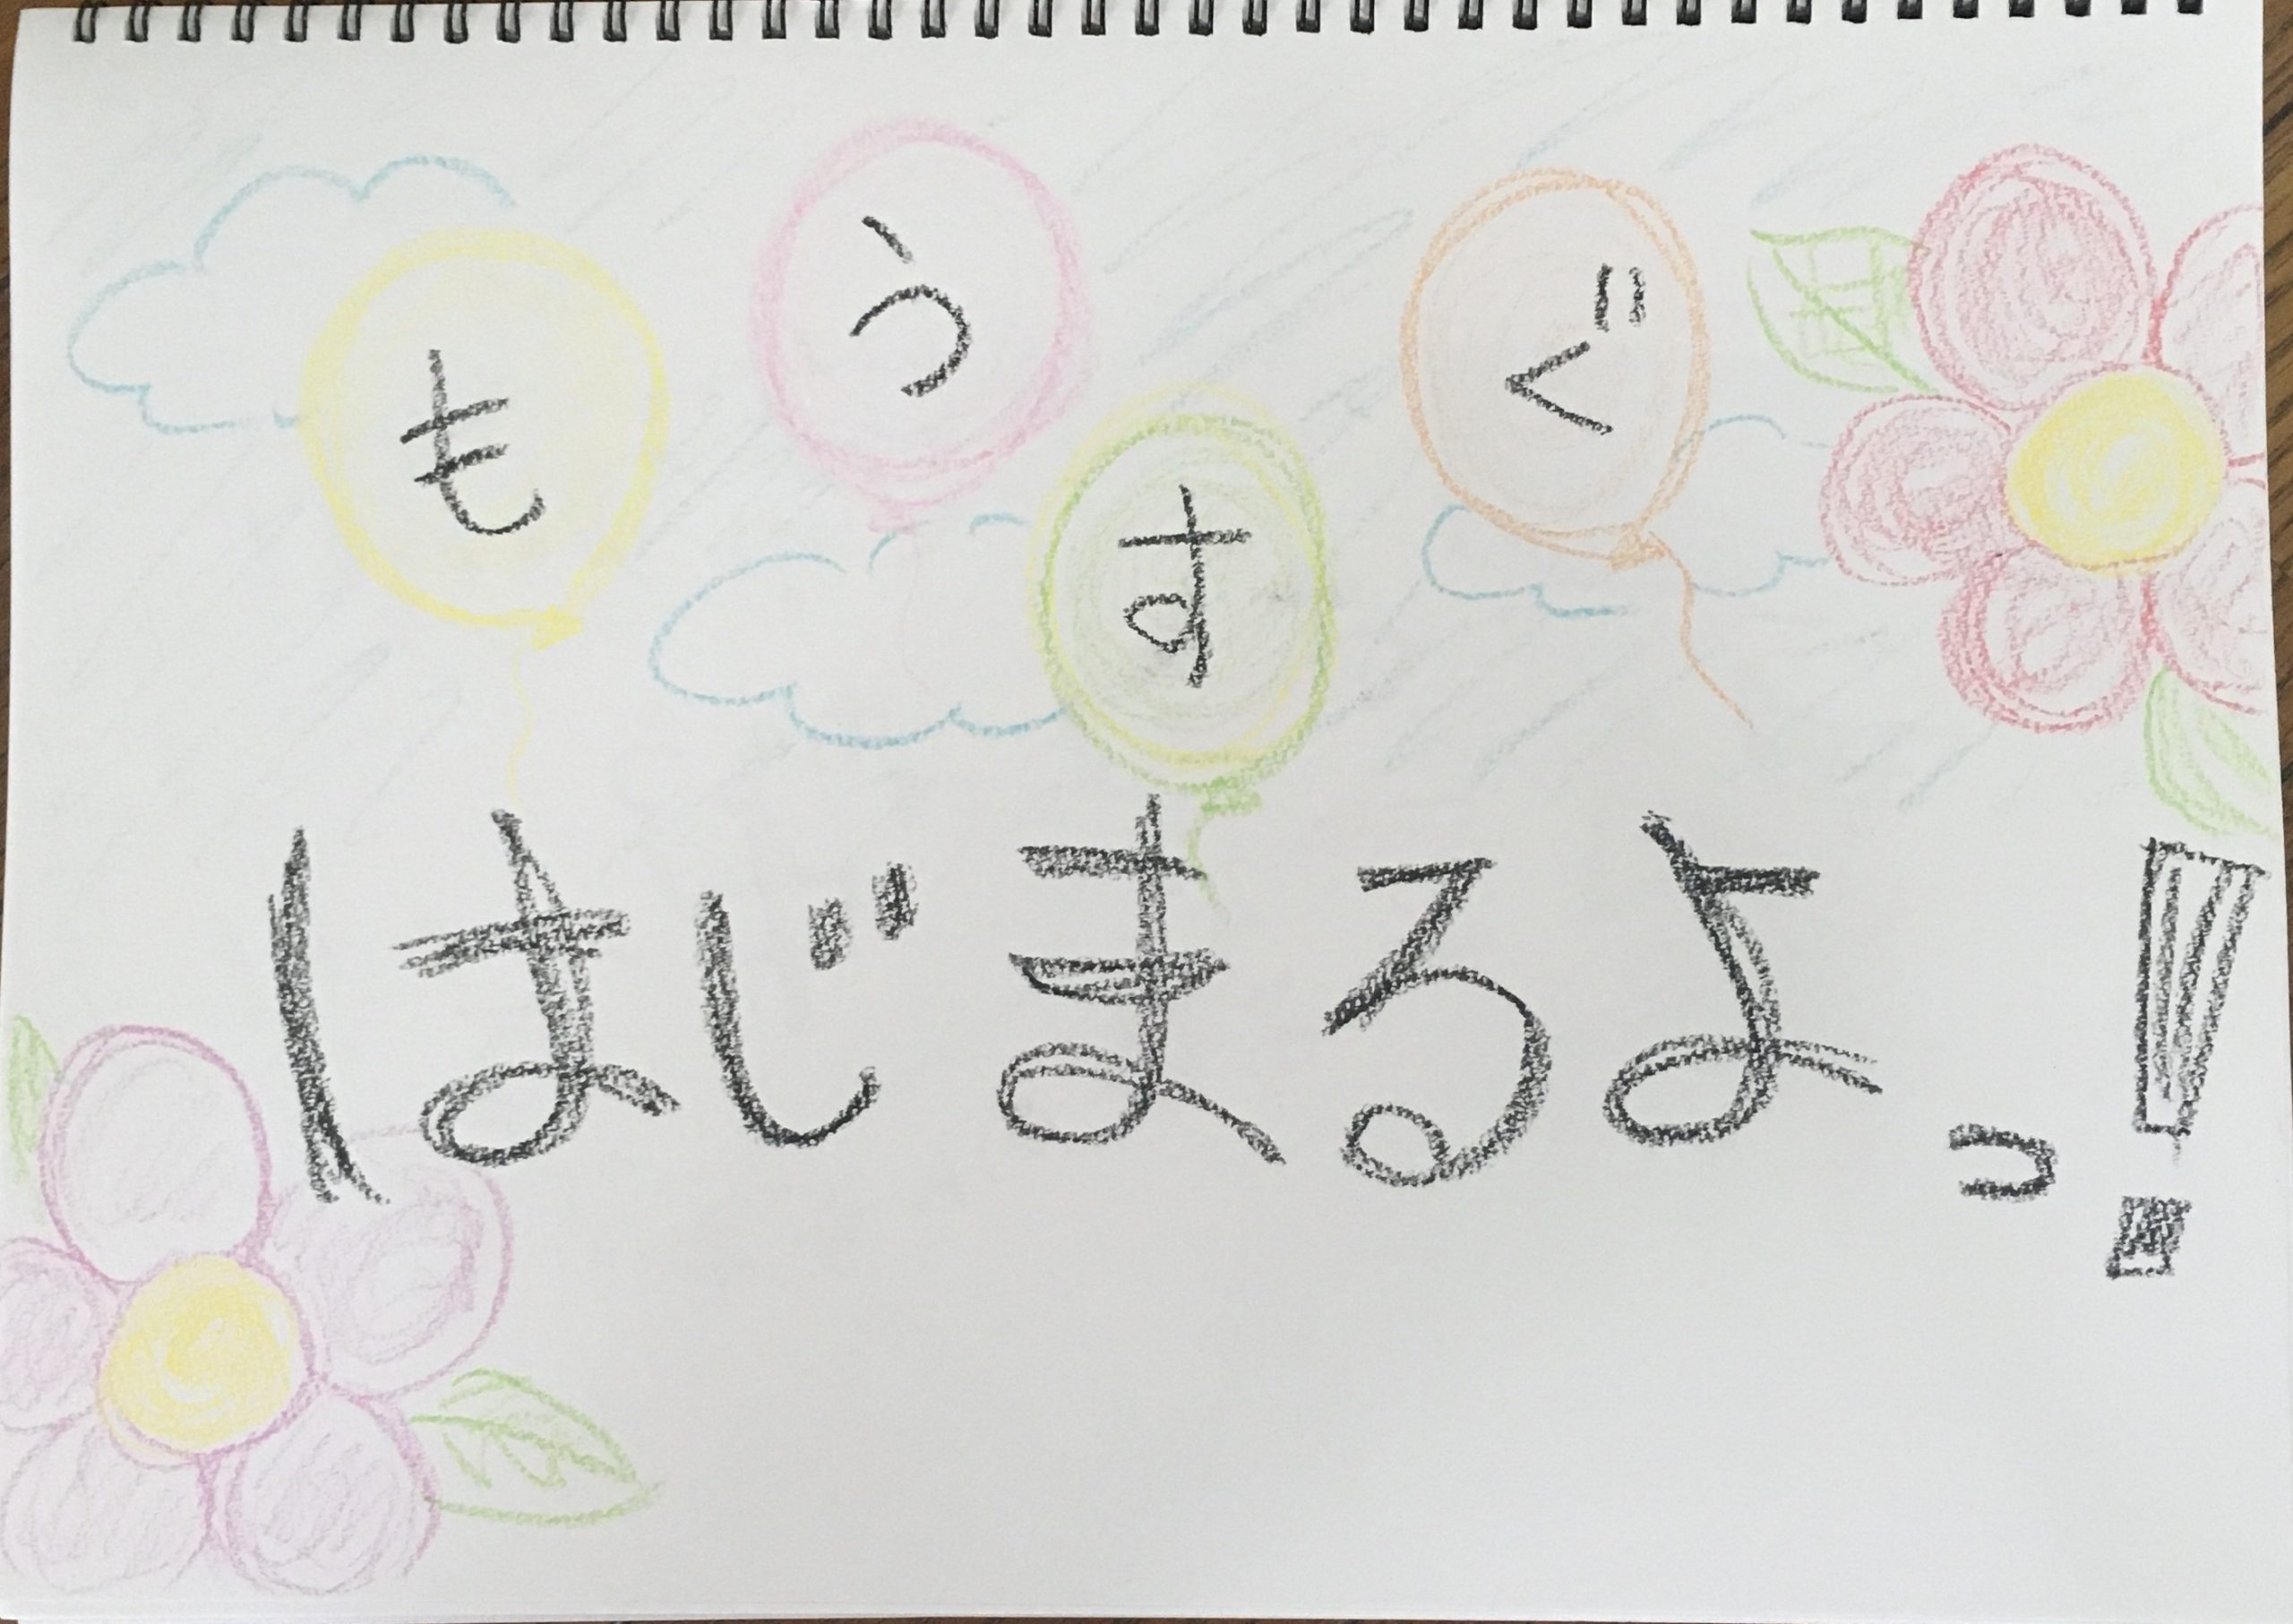 もうすぐ
はじまるよっ!